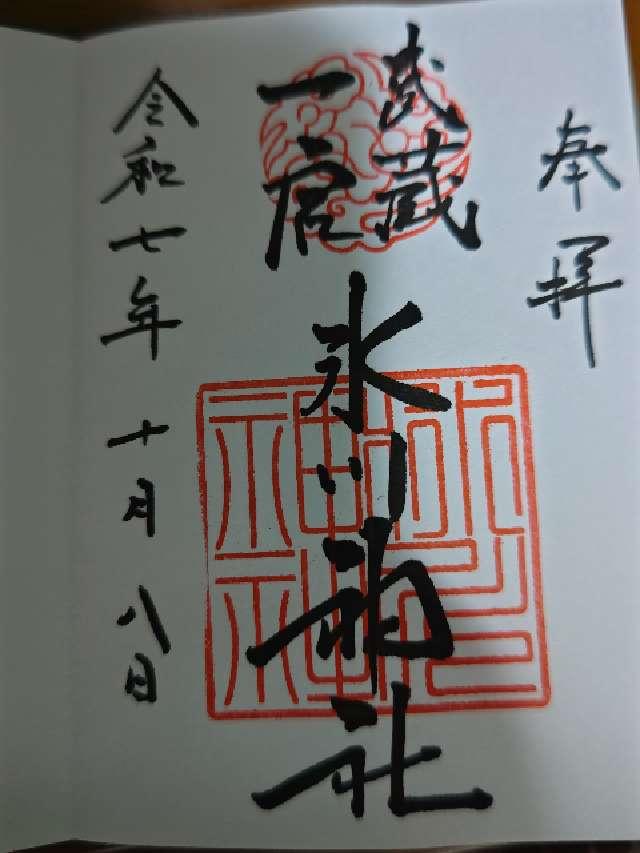 奉拝
武蔵
一宮
氷川神社
令和七年十月八日